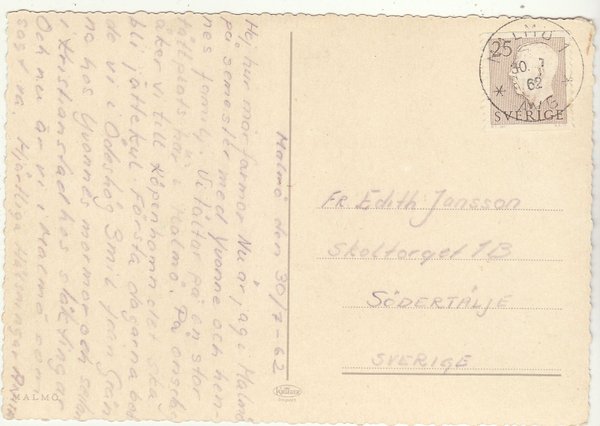 Malmö den 30/7-62
Hej hur mår farmor. Nu är jag i Malmö
på semester med Yvonne och hen-
nes familj. Vi tältar på en stor
tältplats här i Malmö. På onsdag
åker vi till Köpenhamn det ska
bli jättekul. Första dagarna bod-
de vi i 3 mil från
na hos Yvonnes mormor och sedan
i Kristianstad hos släktingar
Och nu är vi i Malmö som
sagt va. Hjärtliga Hälsningar
FR. Edith Jansson
Skoltorget 1B
SÖDERTÄLJE
SVERIGE
25
SVERIGE
MALMÖ 1
30. 7
62
* *
AVG
MALMÖ